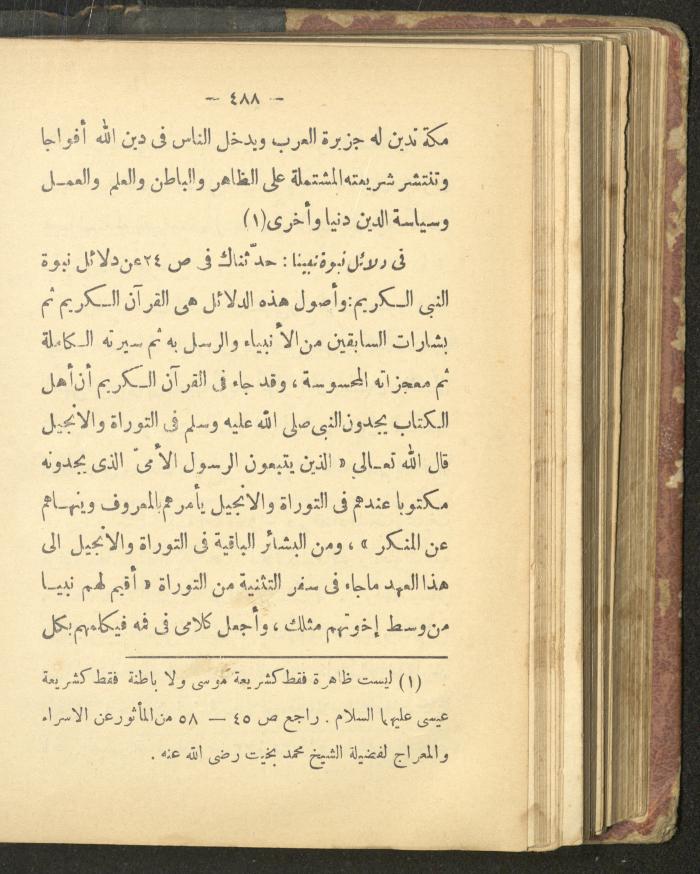 — ٤٨٨ —
مكة تدين له جزيرة العرب ويدخل الناس فى دين الله أفواجا
وتنتشر شريعته المشتملة على الظاهر والباطن والعلم والعمـل
وسياسة الدين دنيا وأخرى (١)
فى دلائل نبوة نبينا : حدّثناك فى ص ٢٤ عن دلائل نبوة
النبى الـكريم : وأصول هذه الدلائل هى القرآن الـكريم ثم
بشارات السابقين من الأنبياء والرسل به ثم سيرته الـكاملة
ثم معجزاته المحسوسة ، وقد جاء فى القرآن الـكريم أن أهل
الكتاب يجدون النبى صلى الله عليه وسلم فى التوراة والانجيل
قال الله تعـالى « الذين يتبعون الرسول الأمىّ الذى يجدونه
مكتوبا عندهم فى التوراة والانجيل يأمرهم بالمعروف وينهـاهم
عن المنـكر » ، ومن البشائر الباقية فى التوراة والانجيل الى
هذا العهد ماجاء فى سفر التثنية من التوراة « أقيم لهم نبيـا
من وسط إخوتهم مثلك ، وأجعل كلامى فى فمه فيكلمهم بكل
(١) ليست ظاهرة فقط كشريعة موسى ولا باطنة فقط كشريعة
عيسى عليهما السلام . راجع ص ٤٥ — ٥٨ من المأثور عن الاسراء
والمعراج لفضيلة الشيخ محمد بخيت رضى الله عنه .